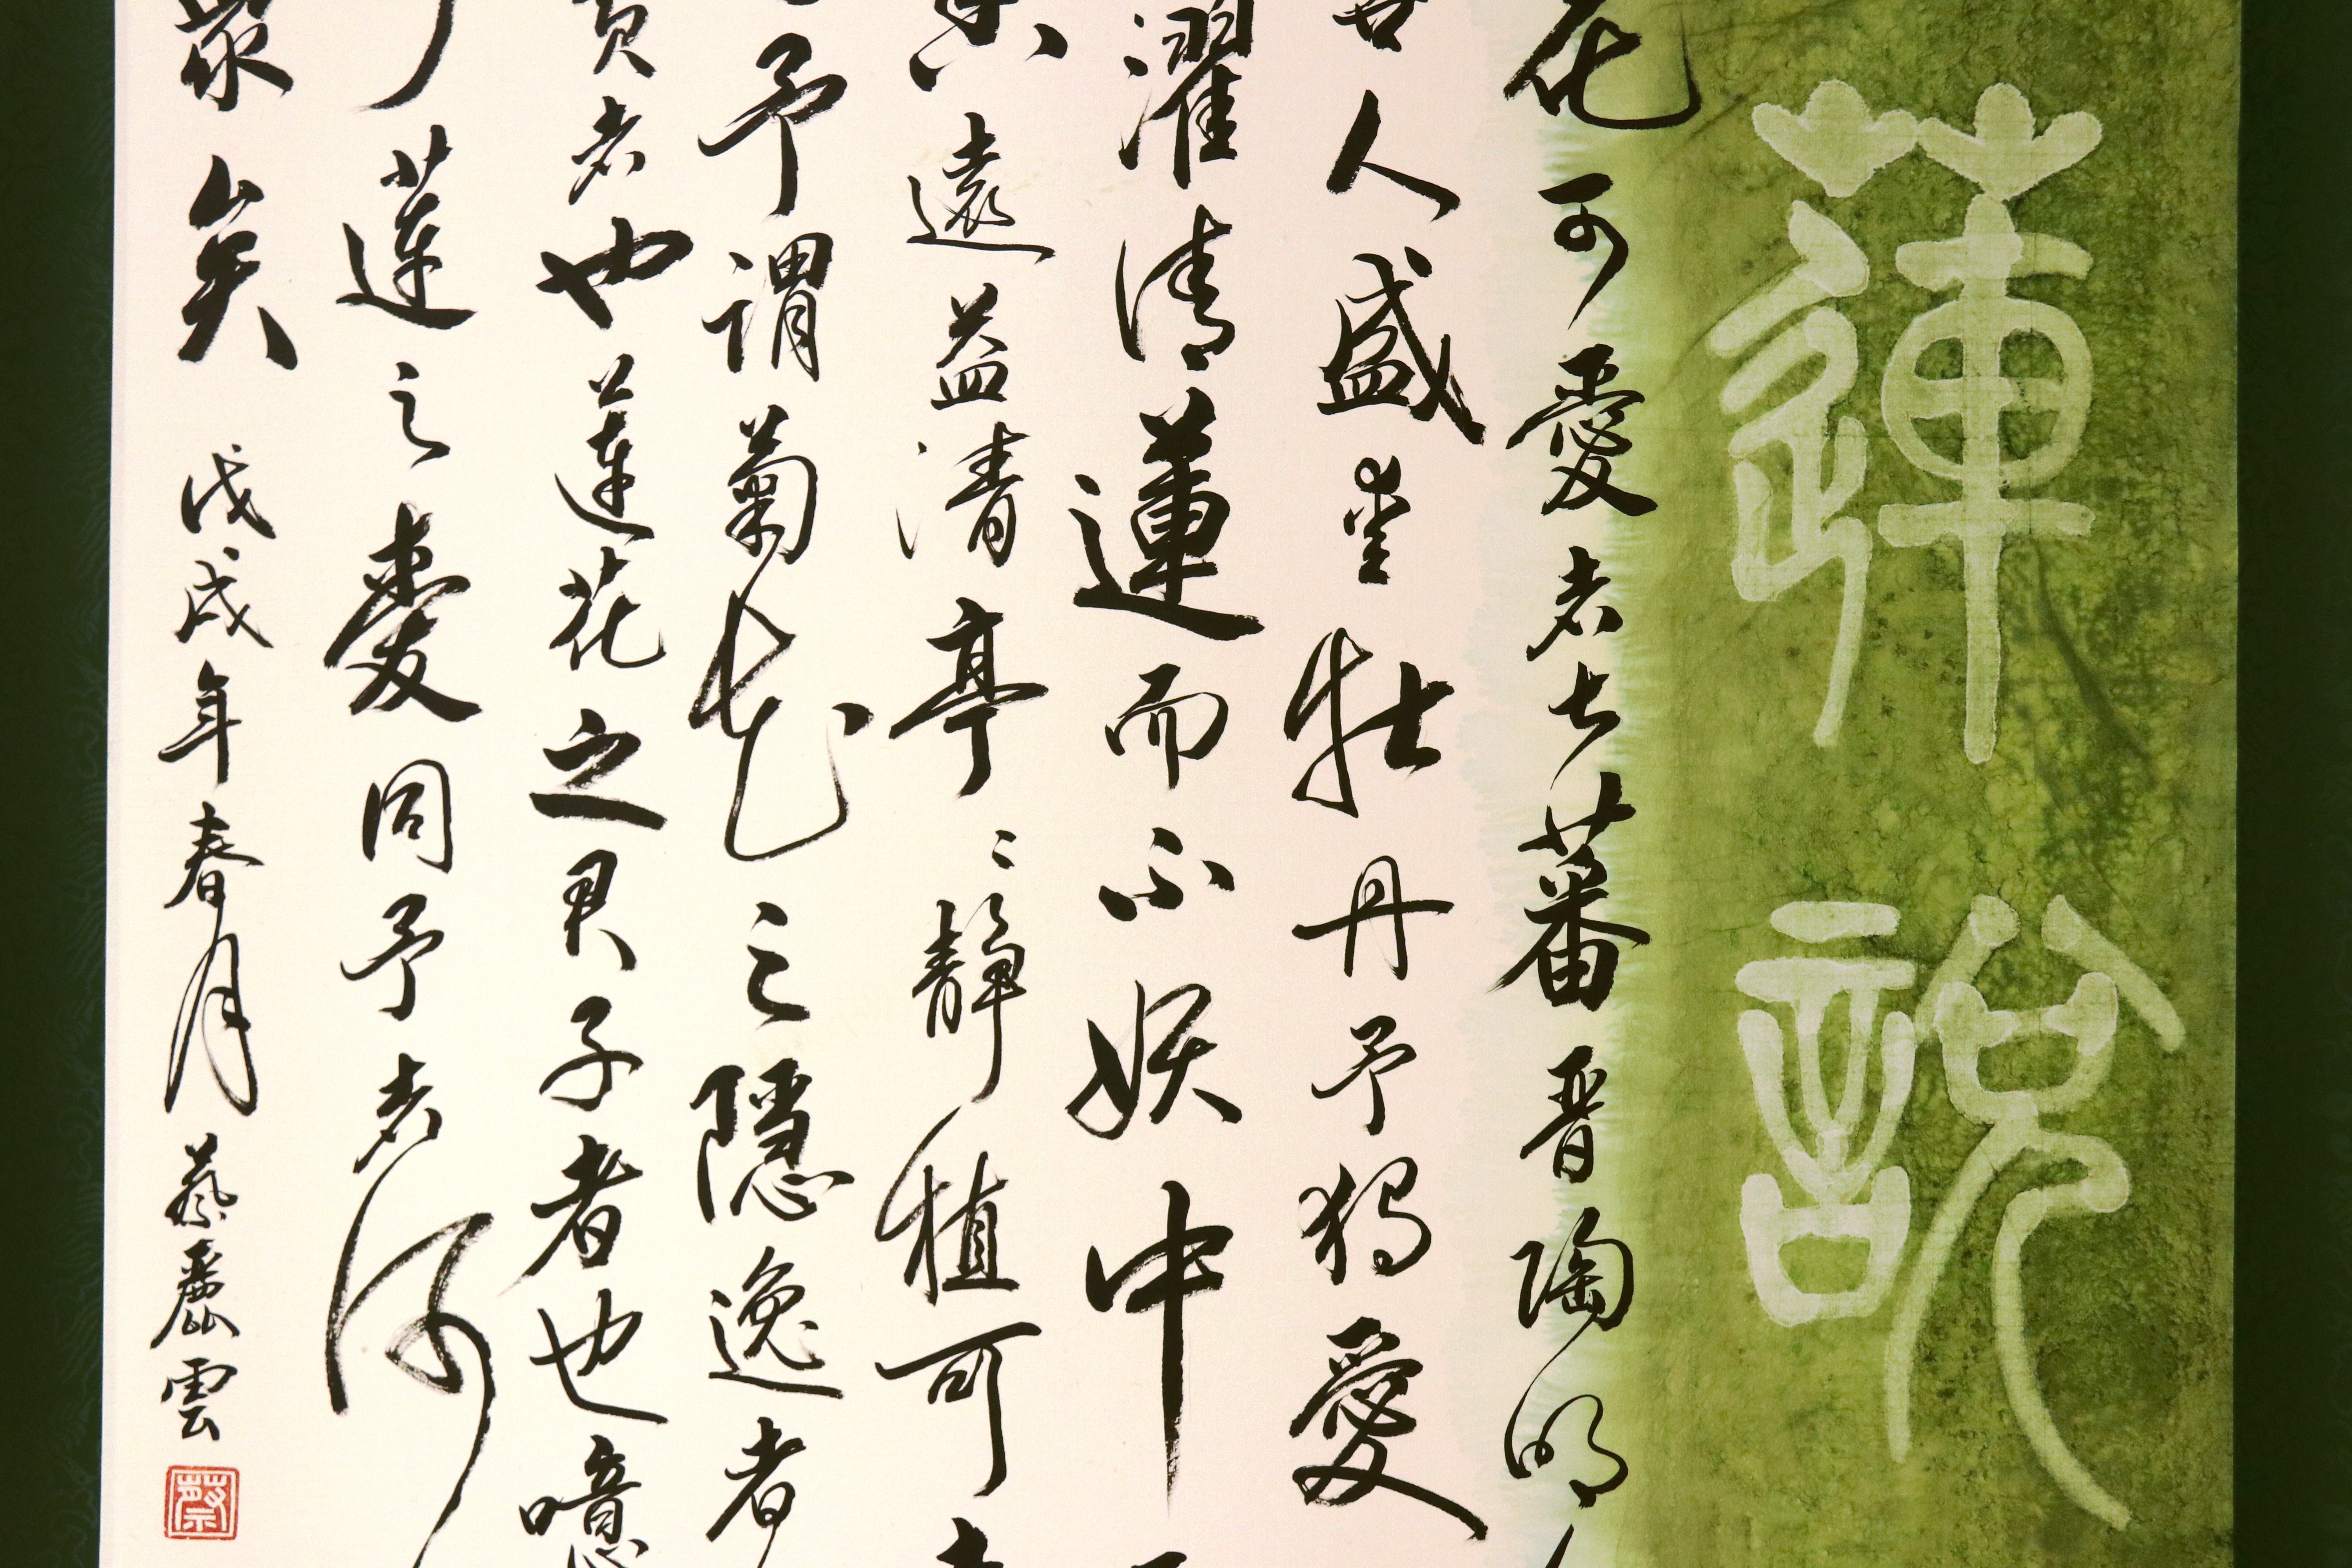 蓮說
花可愛者甚蕃晉陶
人盛愛牡丹予獨愛
濯清蓮而不妖中
遠益清亭〻靜植可
予謂菊花之隱逸者
貴者也蓮花之君子者也噫
蓮之愛同予者何
眾矣 戊戌年春月蔡麗雲
蔡